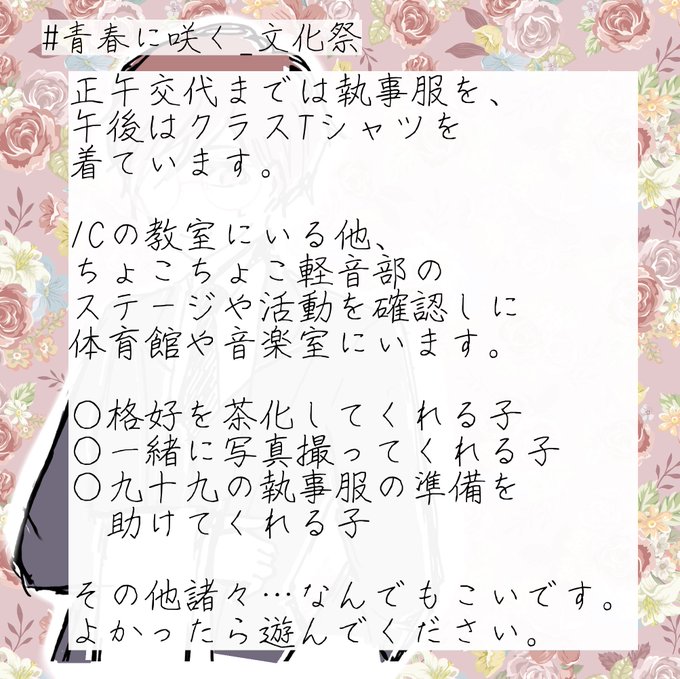 #青春に咲く_文化祭
正午交代までは執事服を、
午後はクラスTシャツを
着ています。
1Cの教室にいる他、
ちょこちょこ軽音部の
ステージや活動を確認しに
体育館や音楽室にいます。
○格好を茶化してくれる子
○一緒に写真撮ってくれる子
○九十九の執事服の準備を
助けてくれる子
その他諸々…なんでもこいです。
よかったら遊んでください。